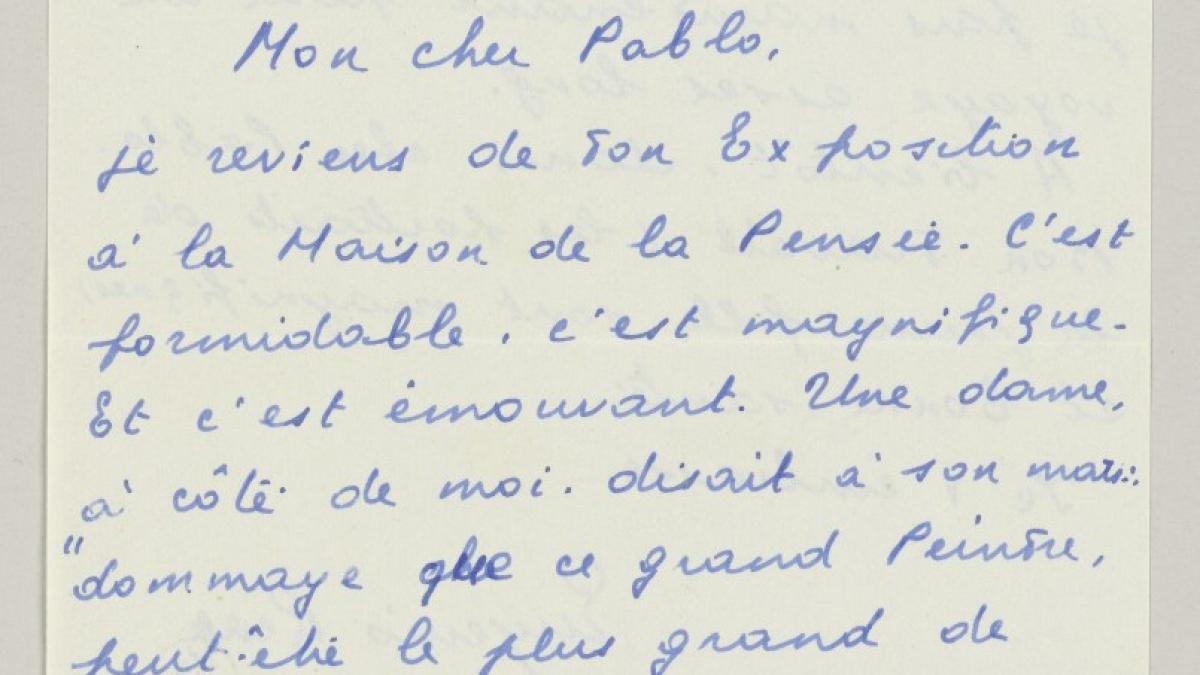 Mon cher Pablo,
je reviens de ton Exposition
à la Maison de la Pensée. C'est
formidable, c'est magnifique.
Et c'est émouvant. Une dame,
à côté de moi, disait à son mari:
"dommage que ce grand Peintre,
peut-être le plus grand de